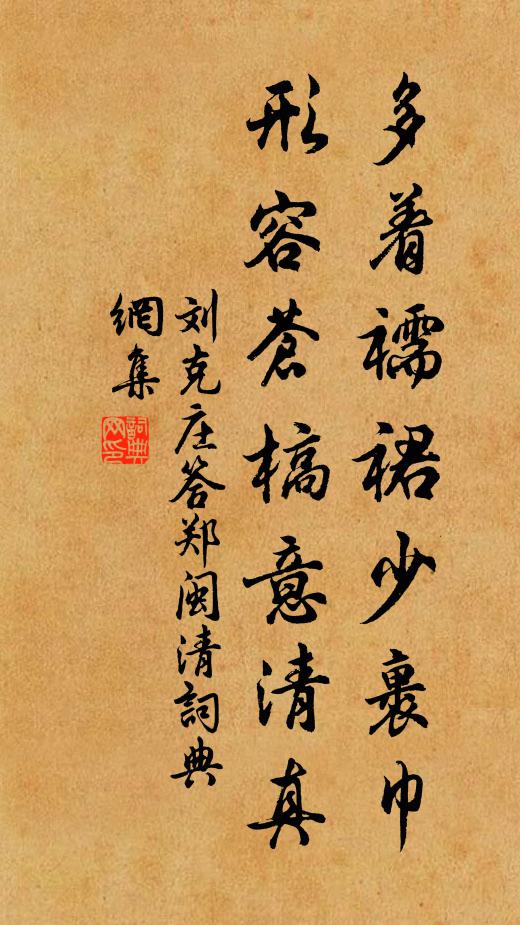 多着襦裙少裹巾
形容苍槁意清真
刘克庄答郑闽清詞典
網集
詞典
网印